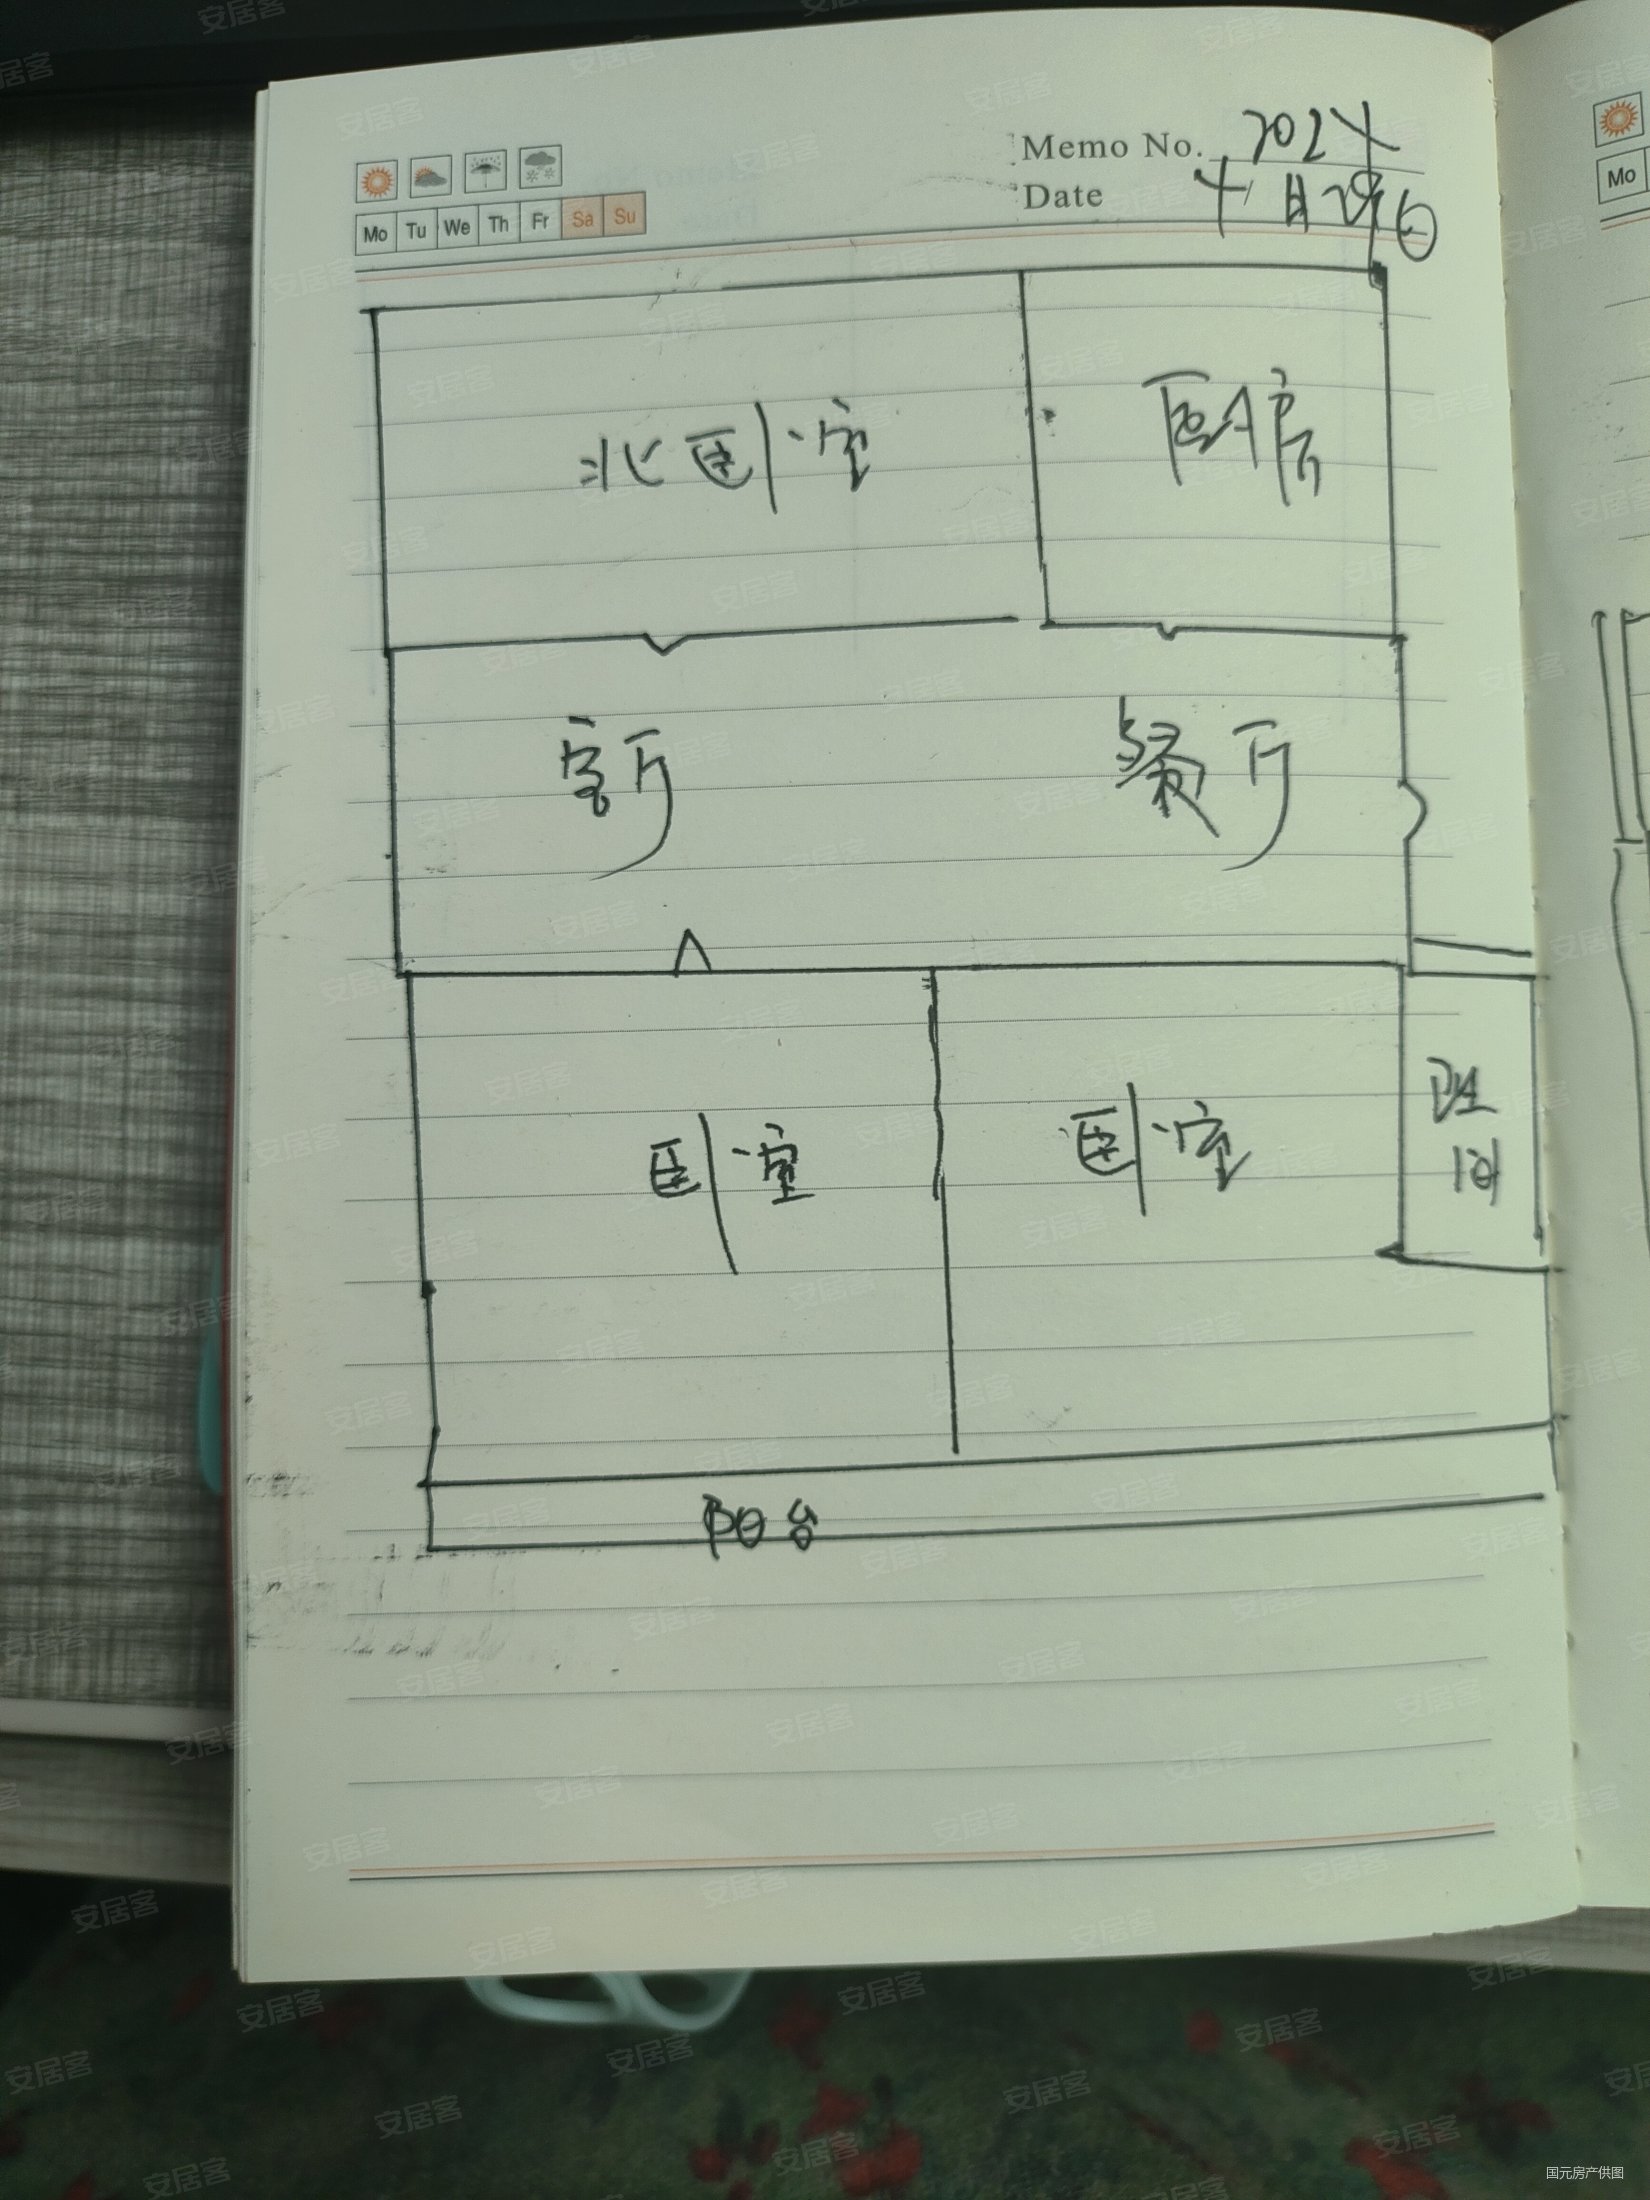 Memo No. 2024
Date 4月29日
Mo Tu We Th Fr Sa Su
Mo
北卧室
厨房
客厅
餐厅
卧室
卧室
卫生
间
阳台
安居客
国元房产供图